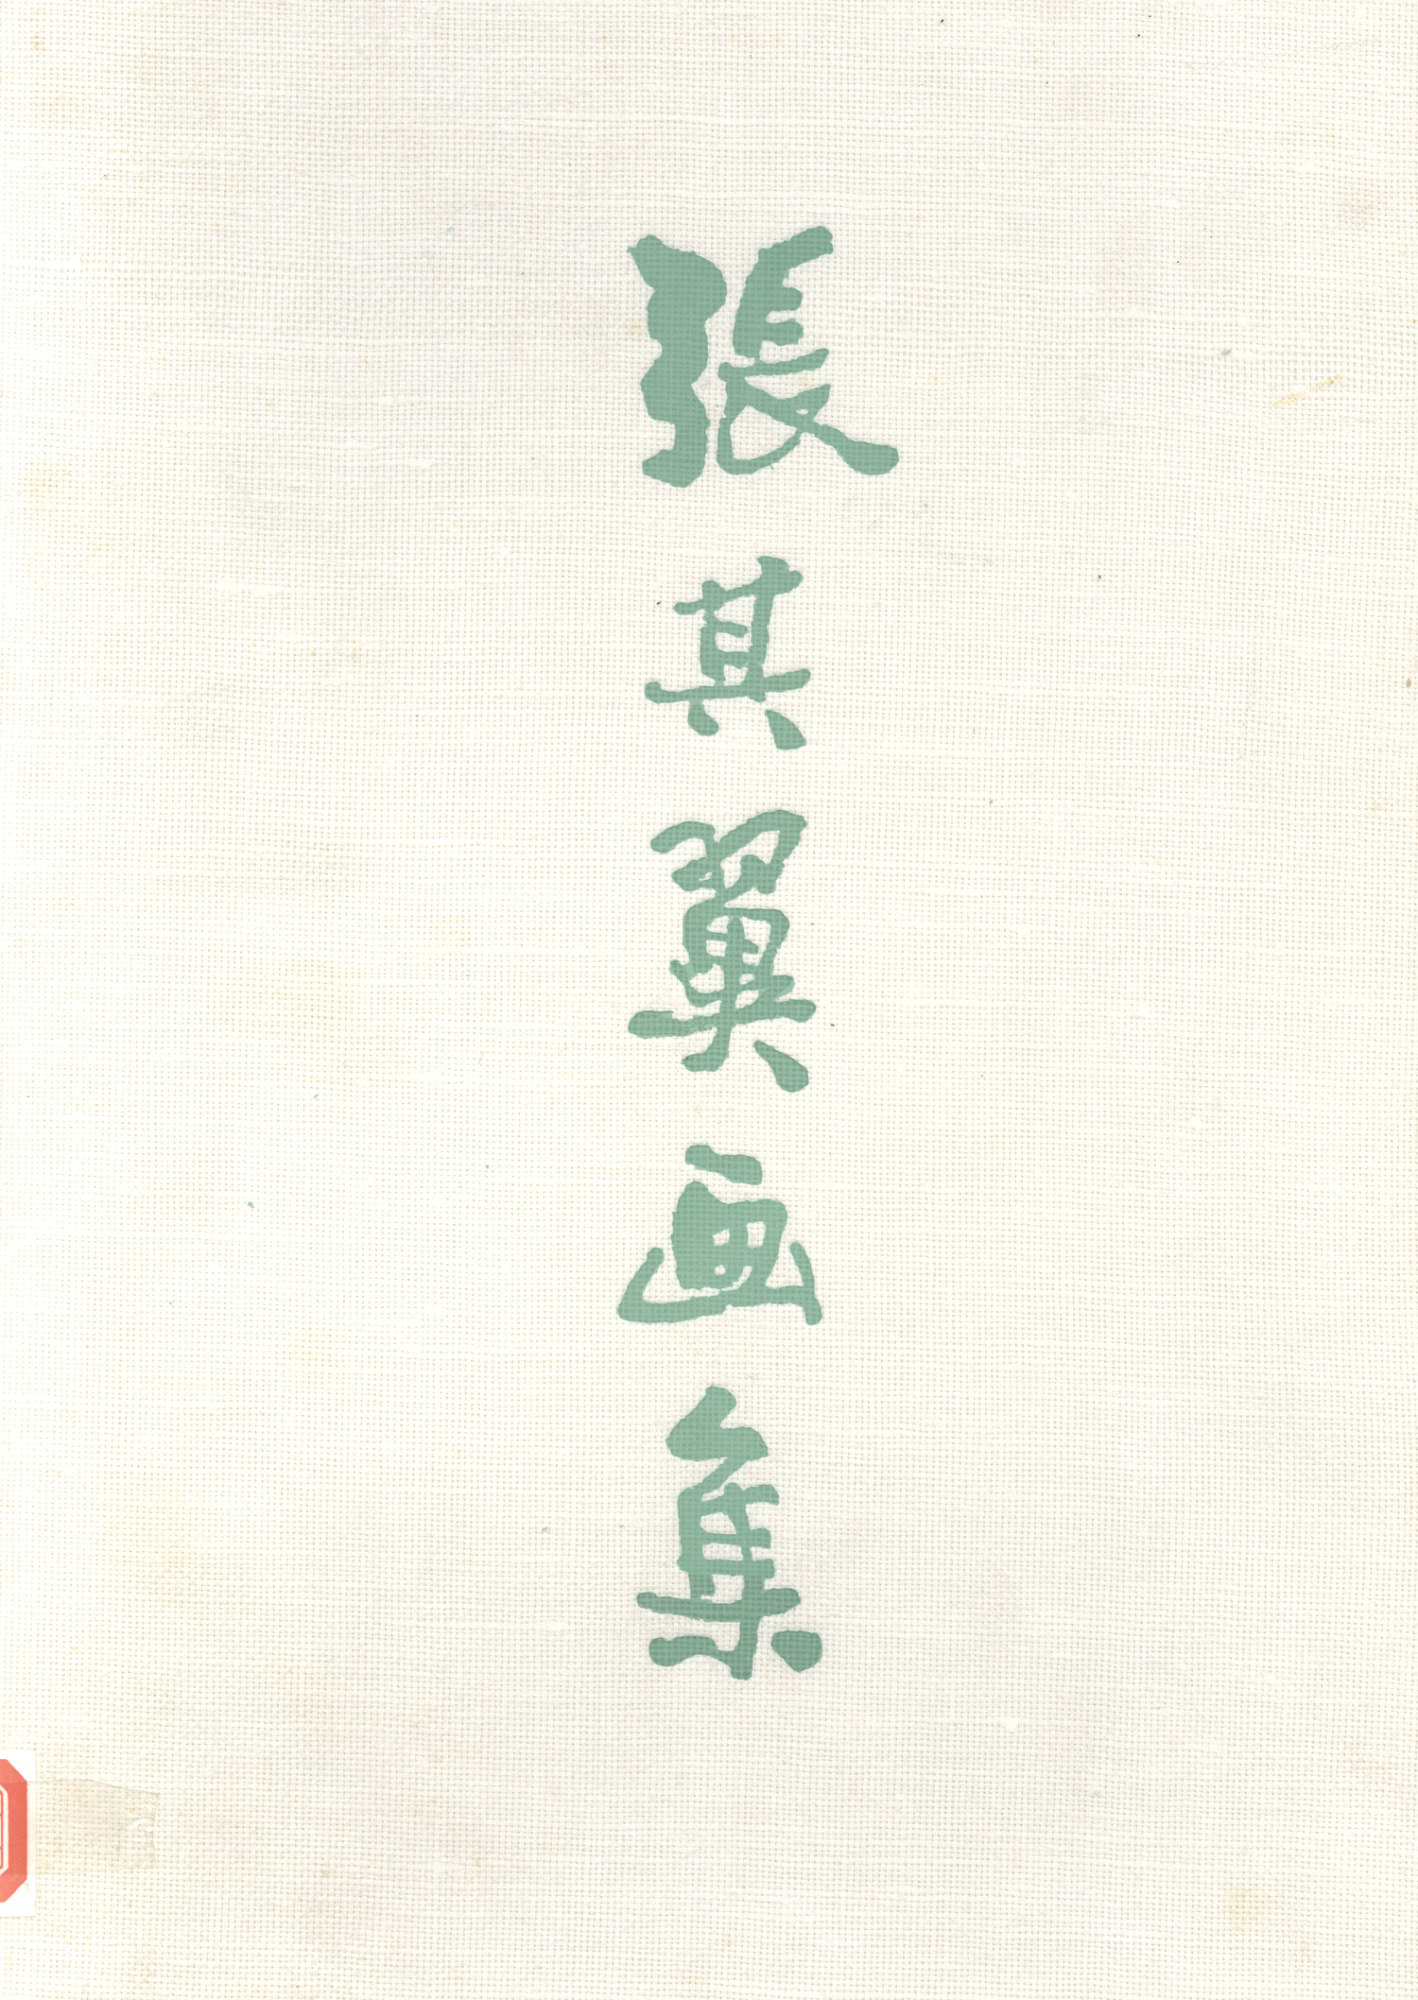 張其翼画集